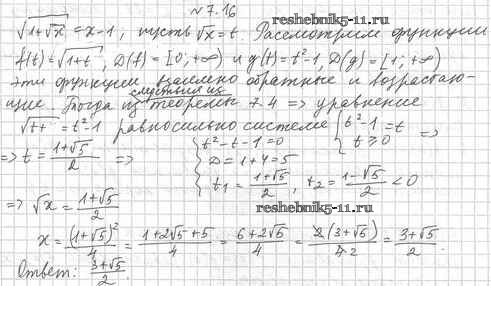 №7.16
reshebnik5-11.ru
√(1+√x) = x-1, пусть √x = t. Рассмотрим функции
f(t) = √(1+t), D(f) = [0; +∞) и g(t) = t²-1, D(g) = [1; +∞)
Эти функции взаимно обратные и возрастаю-
щие. Тогда из следствия из теоремы 7.4 => уравнение
√(t+ = t²-1 равносильно системе { t²-1 = t t ≥ 0 =>
=> t = (1+√5)/2 => { t²-t-1=0
D = 1+4 = 5
t₁ = (1+√5)/2, t₂ = (1-√5)/2 < 0
=> √x = (1+√5)/2
reshebnik5-11.ru
x = (1+√5)²/4 = (1+2√5+5)/4 = (6+2√5)/4 = 2(3+√5)/42 = (3+√5)/2.
Ответ: (3+√5)/2.